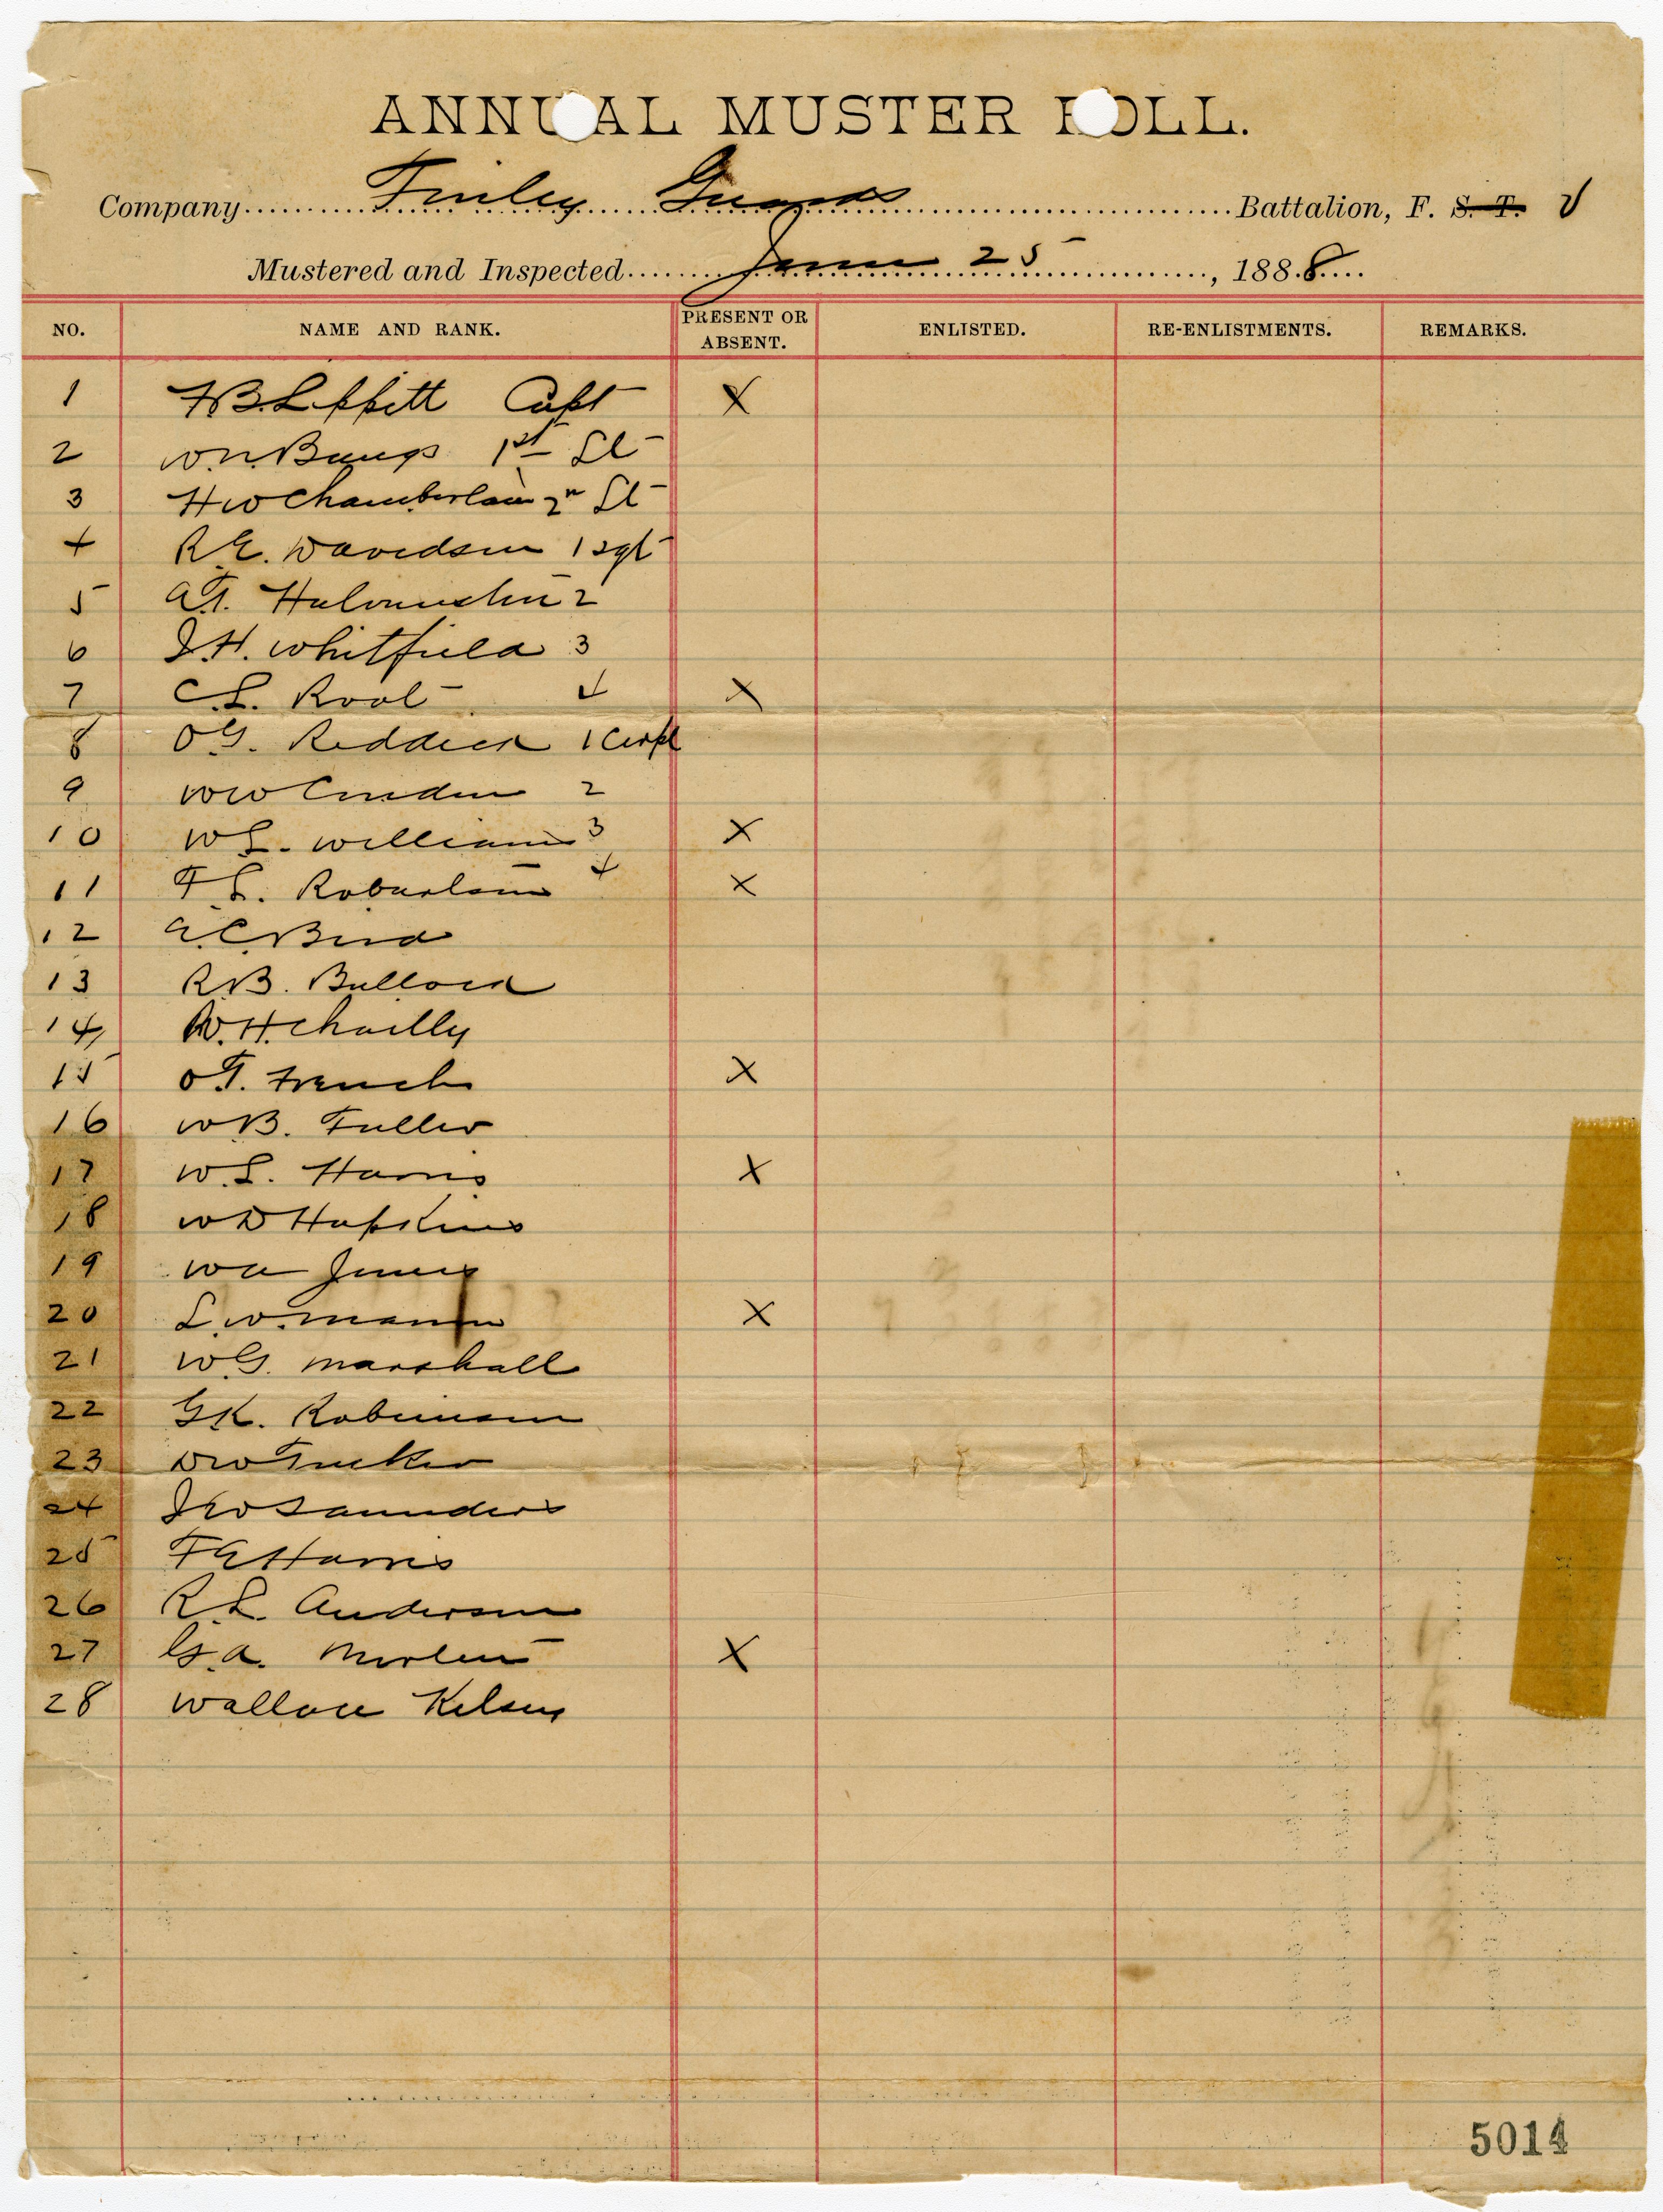 ANNUAL MUSTER ROLL.
Company Finley Guards Battalion, F. S. T. V
Mustered and Inspected June 25, 1888
NO. NAME AND RANK. PRESENT OR ABSENT. ENLISTED. RE-ENLISTMENTS. REMARKS.
1 F B. Lippitt Capt X
2 W. N. Bangs 1st Lt
3 H W Chamberlain 2n Lt
4 R. E. Davidson 1 sgt
5 A. T. 2
6 J. H. Whitfield 3
7 C. L. Root 4 X
8 O G. Reddick 1 Corpl
9 W W 2
10 W L. Williams 3 X
11 F L. Robertson 4 X
12 E. C. Bird
13 R. B. Bullock
14 W. H. Chailly
15 O T. French X
16 W B. Fuller
17 W. L. Harris X
18 W D Hopkins
19 W A Jones
20 L. W. Mann X
21 W G. Marshall
22 G K. Robinson
23 D W Tucker
24 J W Saunders
25 F E Harris
26 R. L. Anderson
27 G. A. X
28 Wallace Kelsey
5014